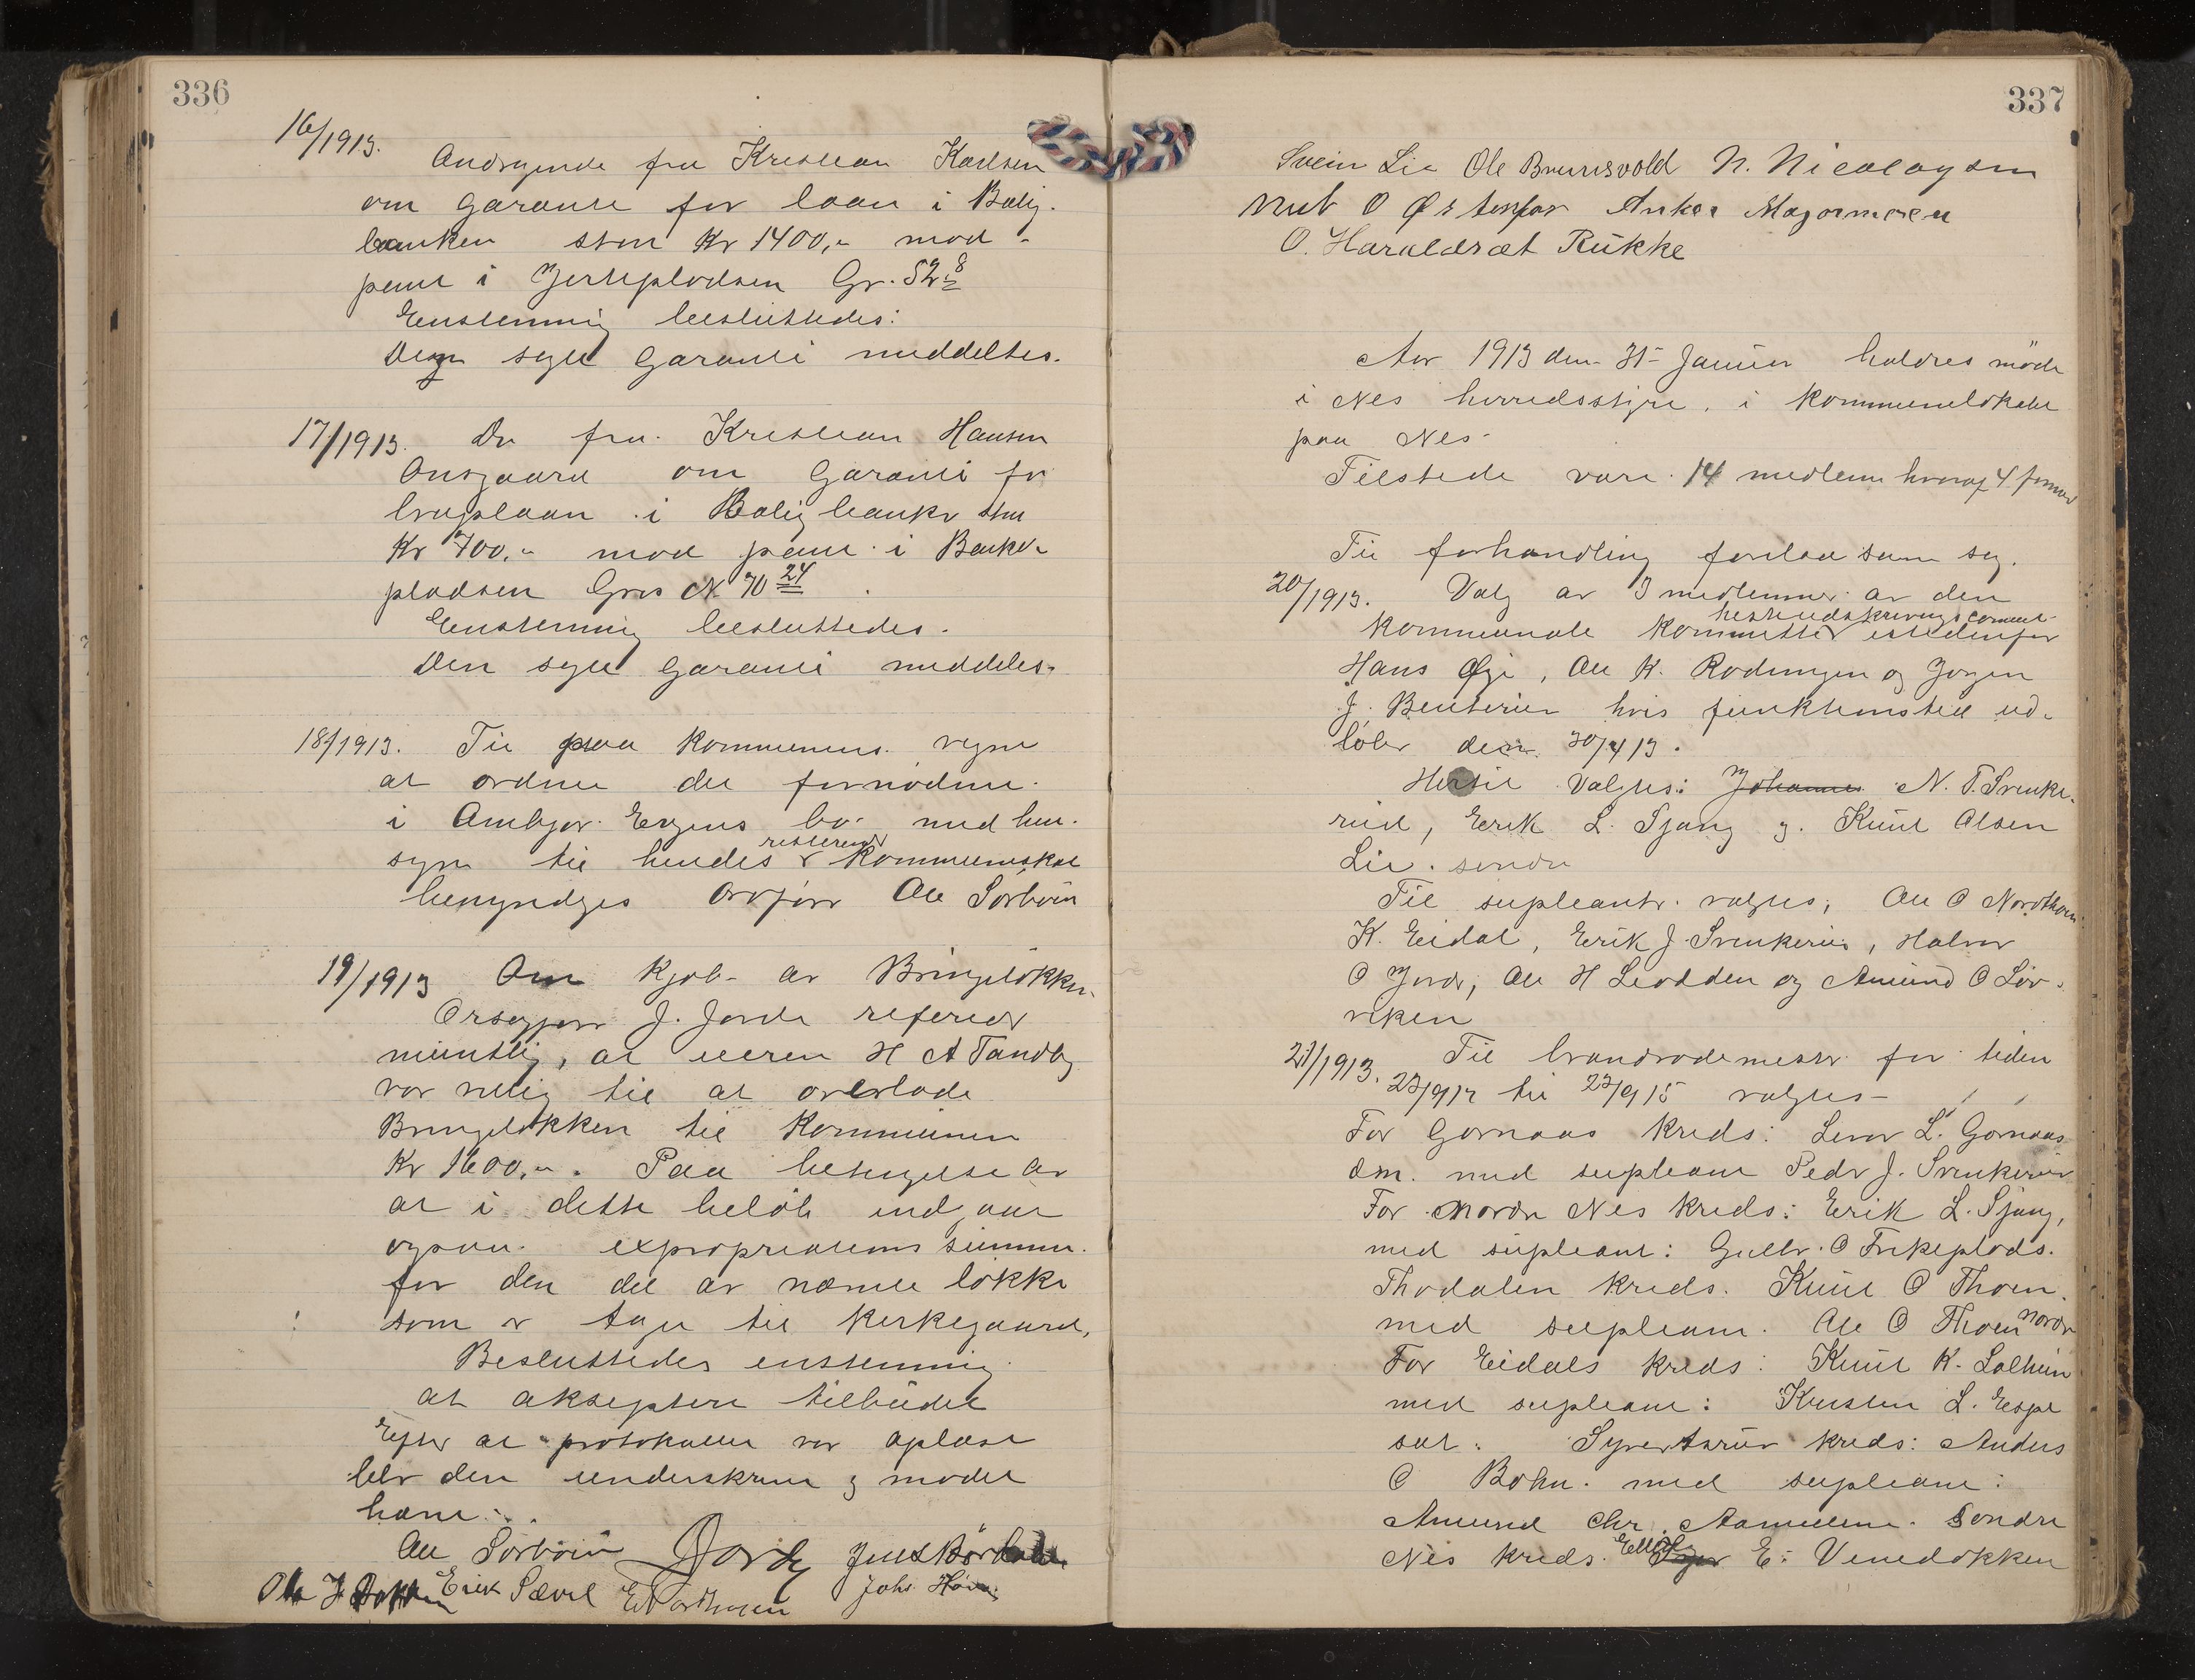 336
16/1913. Andragende fra Kristian Karlsen
om garanti for laan i Bolig-
banken stor Kr 1400,- mod
pant i Gr. 52 8
Enstemmig besluttedes:
Den søgte garanti meddeltes.
17/1913. Do fra Kristian Hansen
Onsgaard om garanti for
bruglaan i Boligbanken stor
Kr 700,- mod pant i Bakke-
pladsen Grs N 70 24
Enstemmig besluttedes.
Den søgte garanti meddeles.
18/1913. Til paa kommunens vegne
at ordne det fornødne
i Ambjør Engens bo med hen-
resterende
syn til hendes kommuneskat
bemyndiges ordfører Ole Sørbøen
19/1913 Om kjøb av Bringeløkken
Ordfører J. Jorde refererte
muntlig, at H A Tandby
var villig til at overlade
Bringeløkken til kommunen
Kr 1600,-. Paa betingelse av
at i dette beløb indgaar
ogsaa expropriations summen
for den del av nævnte løkke
som er taget til kirkegaard.
Besluttedes enstemmig
at akseptere tilbudet
Efter at protokollen var oplæst
blev den underskrevet og mødet
hævet.
Ole Sørbøen Jorde
Erik Sævre E Northagen Johs
337
Svein Lie Ole Brunsvold N. Nicolaysen
O Anker Magormoen
O. Haraldsæt Rukke
Aar 1913 den 31- Januar holdtes møde
i Nes herredsstyre i kommunelokalet
paa Nes
Tilstede vare 14 medlem hvoraf 4 formænd
Til forhandling forelaa sam sag.
20/1913. Valg av 3 medlemmer av den
hesteudskrivnings
kommunale kommitte istedenfor
Hans Øye, Ole K. Rodningen og Jørgen
J. Benterud hvis funktionstid ud-
løber den 30/4 13.
Hertil valgtes: Johannes N. T. Svenke-
rud, Erik L. Sjong og Knut Olsen
Lie søndre
Til supleanter valgtes, Ole O Nordthoen
K. Eidal, Erik J. Svenkerud, Halvor
O Jorde, Ole H Liodden og Amund O Løv-
viken
21/1913. Til brandrodemester for tiden
23/9 12 til 23/9 15 valgtes
For Garnaas kreds: Levor L. Garnaas
dm. med supleant Peder J. Svenkerud
For nordre Nes kreds: Erik L. Sjong,
med supleant: Gulbr. O Frikeplads.
Thodalen kreds. Knut O Thoen.
med supleant. Ole O Thoen nordre
For Eidals kreds: Knut K. Solheim
med supleant: Kristen L. Espe
sæt. Syvertsrud kreds: Anders
O Bohn. med supleant:
Amund Chr. Aamunn. Søndre
Nes kreds. E. Venneløkken